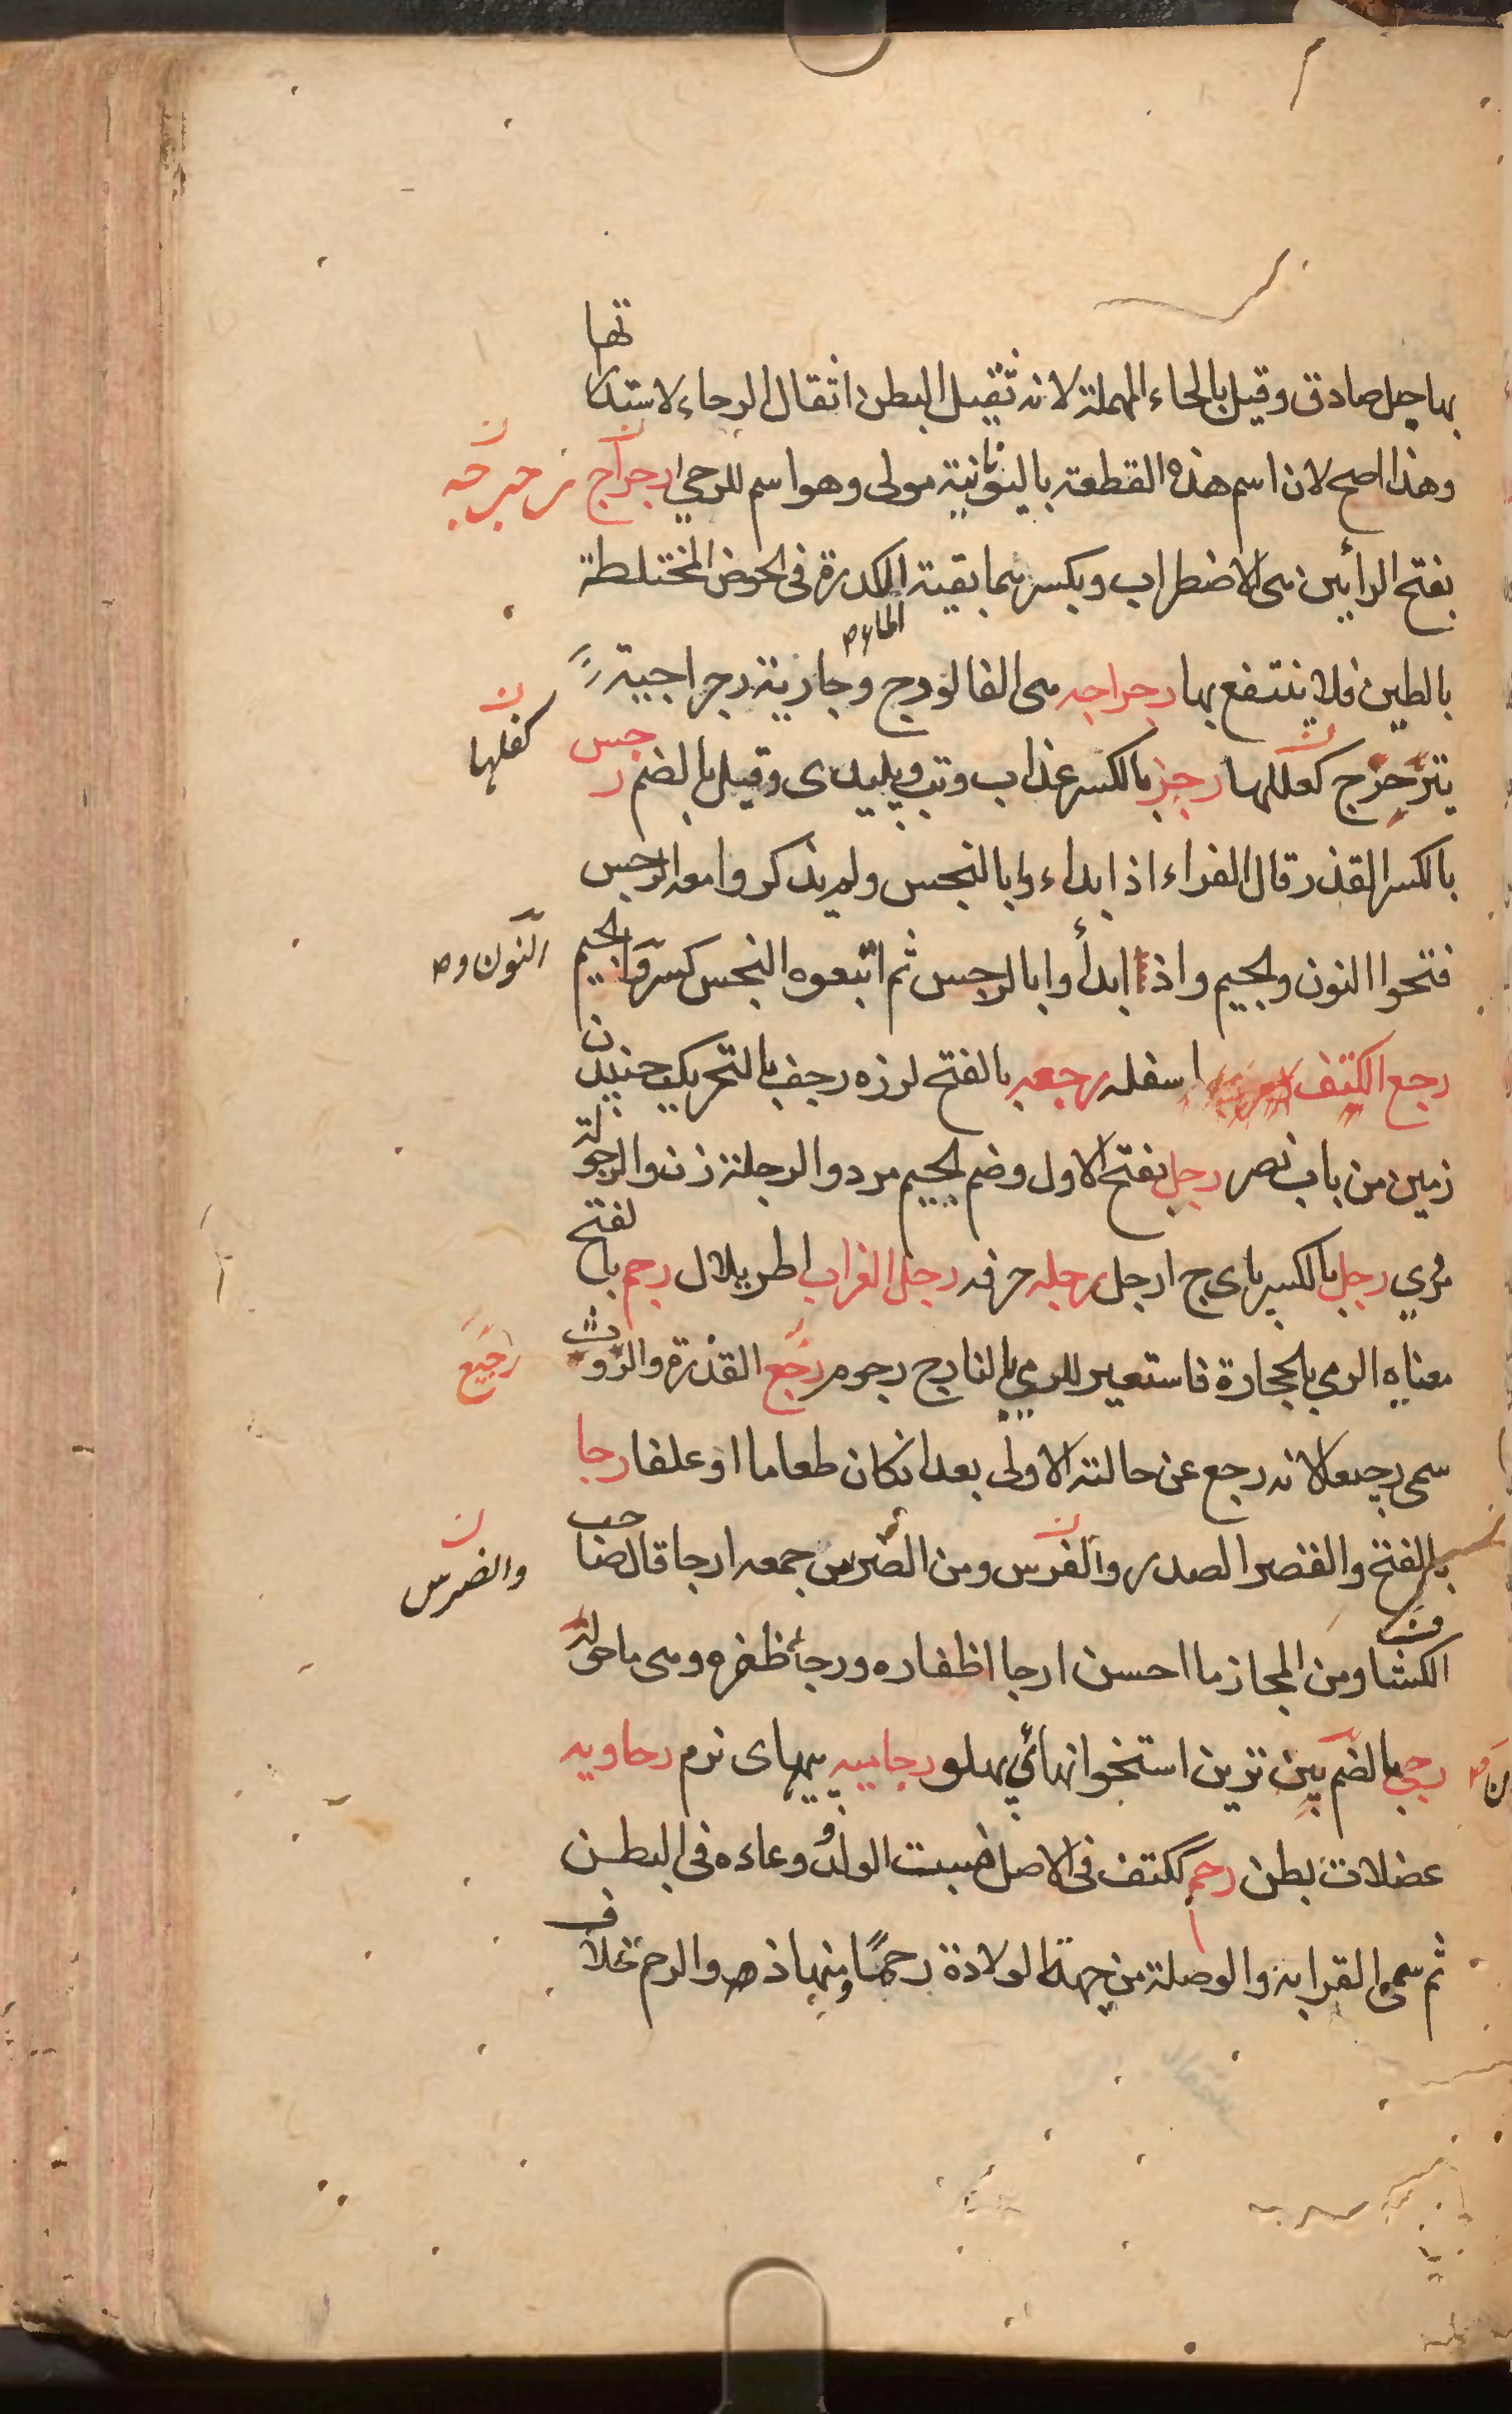 بها جبل صادق وقيل بالحاء المهملة لانه ثقيل البطن اثقال الرحاء لاستدارتها
وهذا اصح لان اسم هذه القطعة باليونانية مولى وهو اسم للرحي رجراج
رجرجه
بفتح الرأيين مى الاضطراب وبكسرهما بقية الكدرة فى الحوض المختلطة
الماء
بالطين فلا ينتفع بها رجراجه مى الفالوذج وجارية رجراجية
يترجرج كفلها رجز بالكسر عذاب وتب وپليدى وقيل بالضم رجس
كفلها
بالكسر القذر قال الفراء اذا بداءوا بالنجس ولم يذكروا معه الرجس
فتحوا النون والجيم واذا ابدأوا بالرجس ثم اتبعوه النجس كسروا الجيم
النون و
رجع الكتف اسفله رجعه بالفتح لرزه رجف بالتحريك جنبيدن
زمين من باب نصر رجل بفتح الاول وضم الجيم مرد والرجلة زن والرجولة
مردي رجل بالكسر پاى ج ارجل رجله خرفه رجل الغراب اطريلال رجم بالفتح
معناه الرمي بالحجارة فاستعير للرمي بالنار ج رجوم رجع القذرة والروث
رجيع
سمى رجيعا لانه رجع عن حالته الاولى بعد ان كان طعاما او علفا رجا
بالفتح والقصر الصدر والفرس ومن الضرس جمعه ارجا قال صاحب
والضرس
الكشاف ومن المجاز ما احسن ارجا اظفاره ورجا ظفره ومى ما حوله
رجي بالضم پين ترين استخوانهائي پهلو رجاييه پيهاى نرم رحاويه
عضلات بطن رحم ككتف فى الاصل منبت الولد و وعاءه فى البطن
ثم سمى القرابة والوصلة من جهة الولادة رحمًا ومنها ذو الرحم خلاف